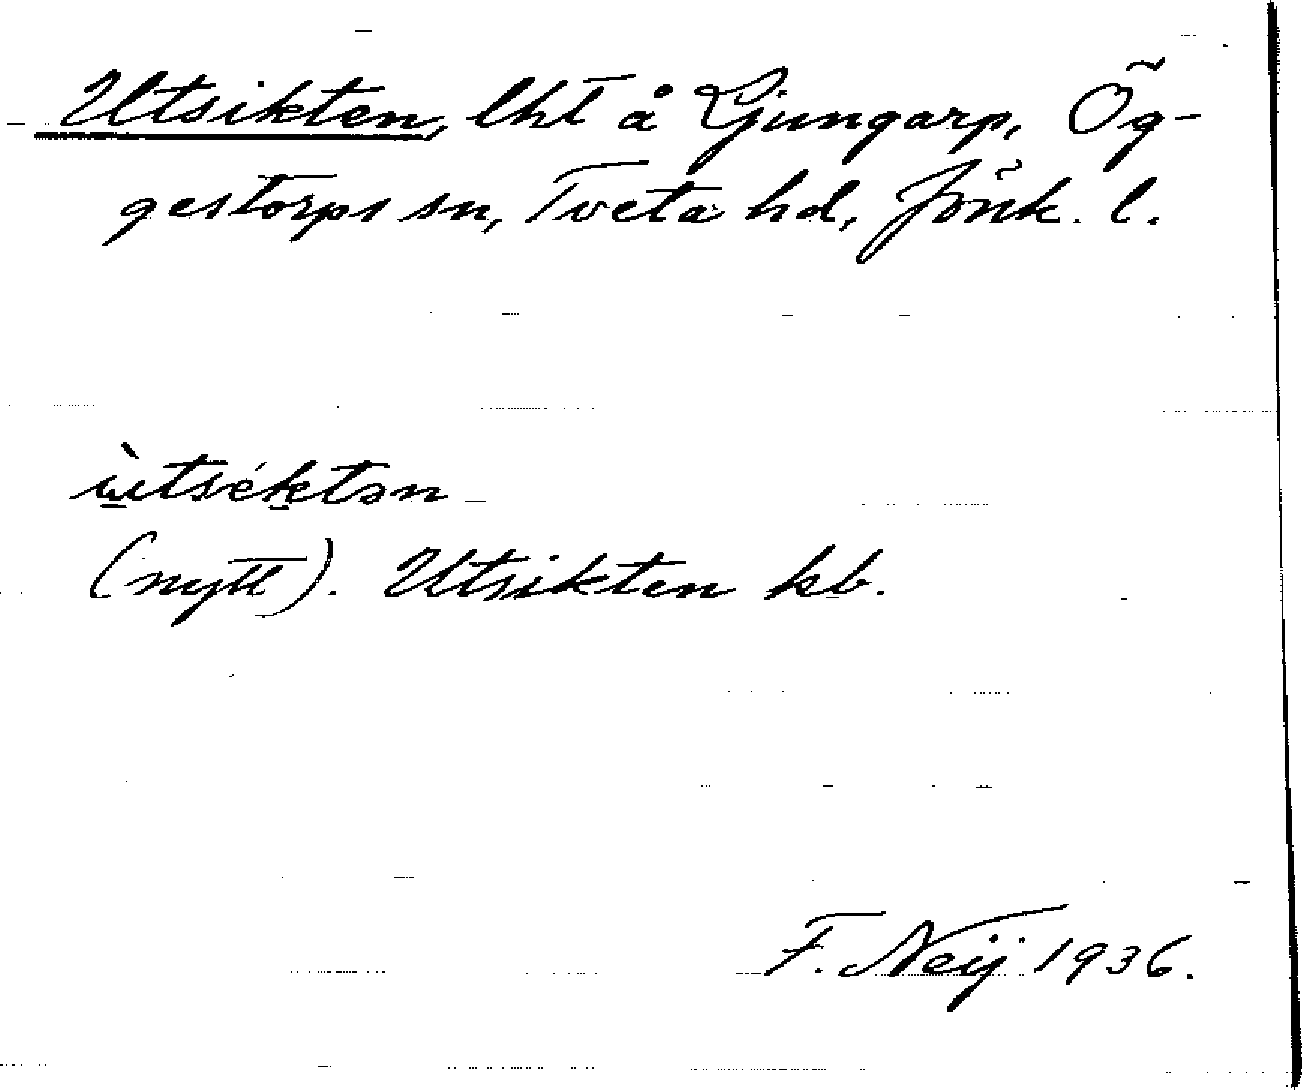 Utsikten, lht å Ljungarp, Ög-
gestorps sn, Tveta hd, Jönk. l.
ùtséktən
(nytt). Utsikten kb.
F. Neij 1936.